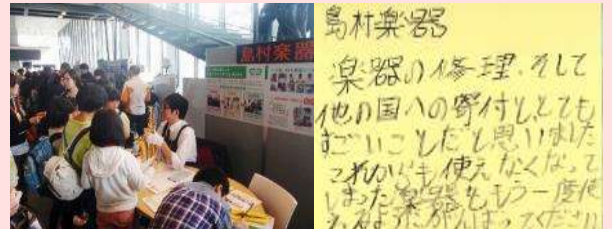 島村楽器
島村楽器
楽器の修理、そして
他の国への寄付ととても
すごいことだと思いました
これからも使えなくなって
しまった楽器をもう一度使
えるようにがんばってください